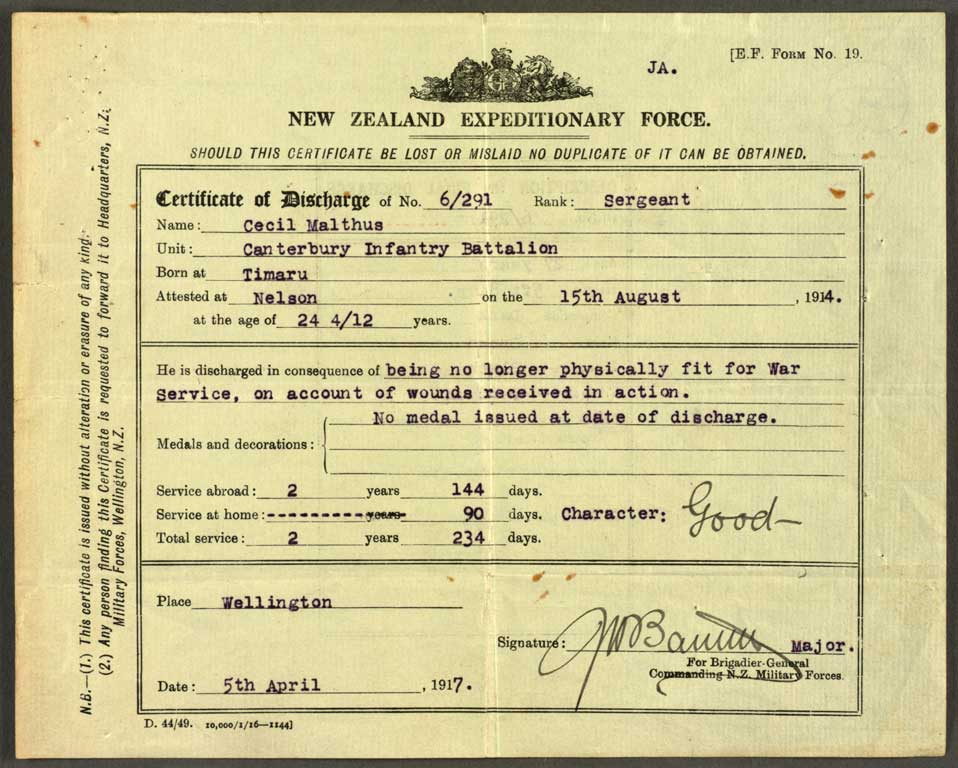 JA.
[E.F. Form No. 19.
NEW ZEALAND EXPEDITIONARY FORCE.
SHOULD THIS CERTIFICATE BE LOST OR MISLAID NO DUPLICATE OF IT CAN BE OBTAINED.
Certificate of Discharge of No. 6/291 Rank: Sergeant
Name: Cecil Malthus
Unit: Canterbury Infantry Battalion
Born at Timaru
Attested at Nelson on the 15th August, 1914.
at the age of 24 4/12 years.
He is discharged in consequence of being no longer physically fit for War
Service, on account of wounds received in action.
No medal issued at date of discharge.
Medals and decorations:
Service abroad: 2 years 144 days.
Service at home: years 90 days. Character: Good
Total service: 2 years 234 days.
Place Wellington
Signature: Major.
For Brigadier-General
Commanding N.Z. Military Forces.
Date: 5th April, 1917.
D. 44/49. 10,000/1/16—1144]
N.B.—(1.) This certificate is issued without alteration or erasure of any kind.
(2.) Any person finding this Certificate is requested to forward it to Headquarters, N.Z.
Military Forces, Wellington, N.Z.